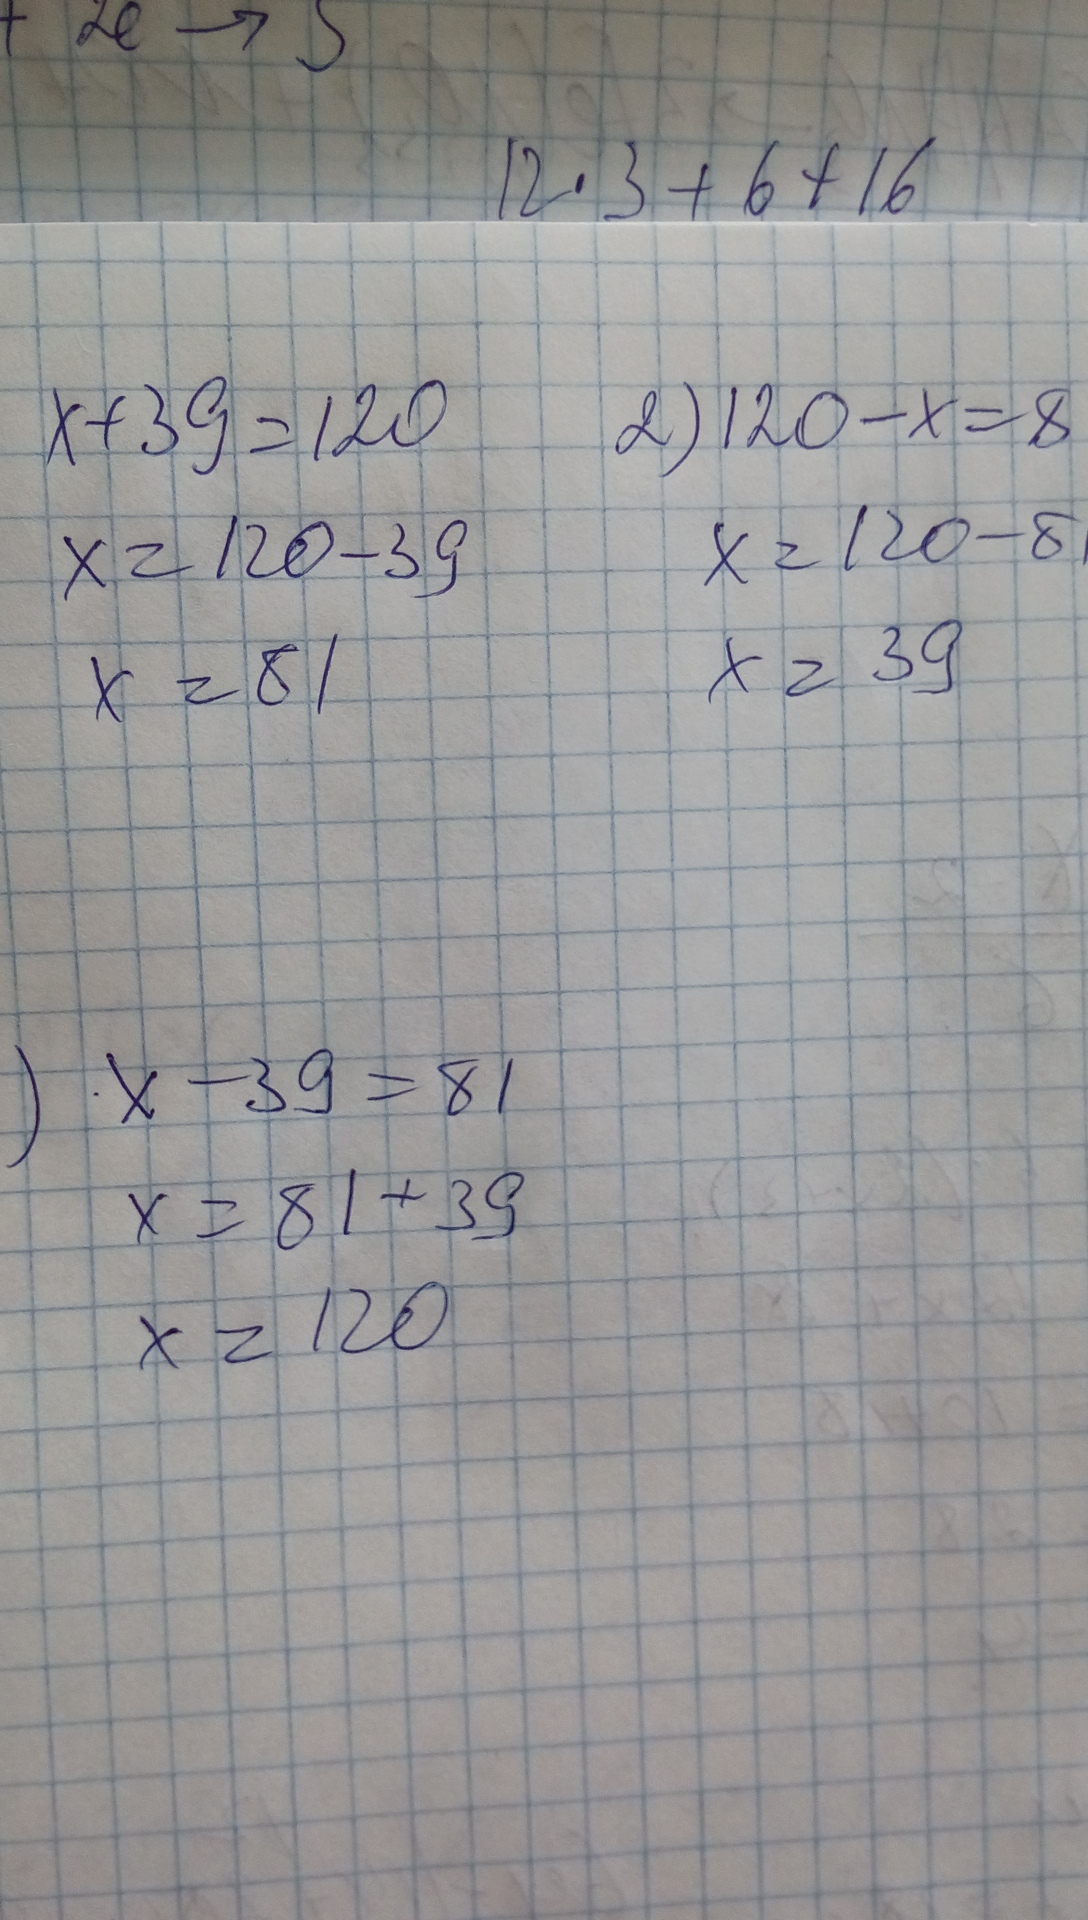 + 2e → S
12·3+6+16
x+39=120
x=120-39
x=81
2)120-x=8
x=120-81
x=39
) x-39=81
x=81+39
x=120